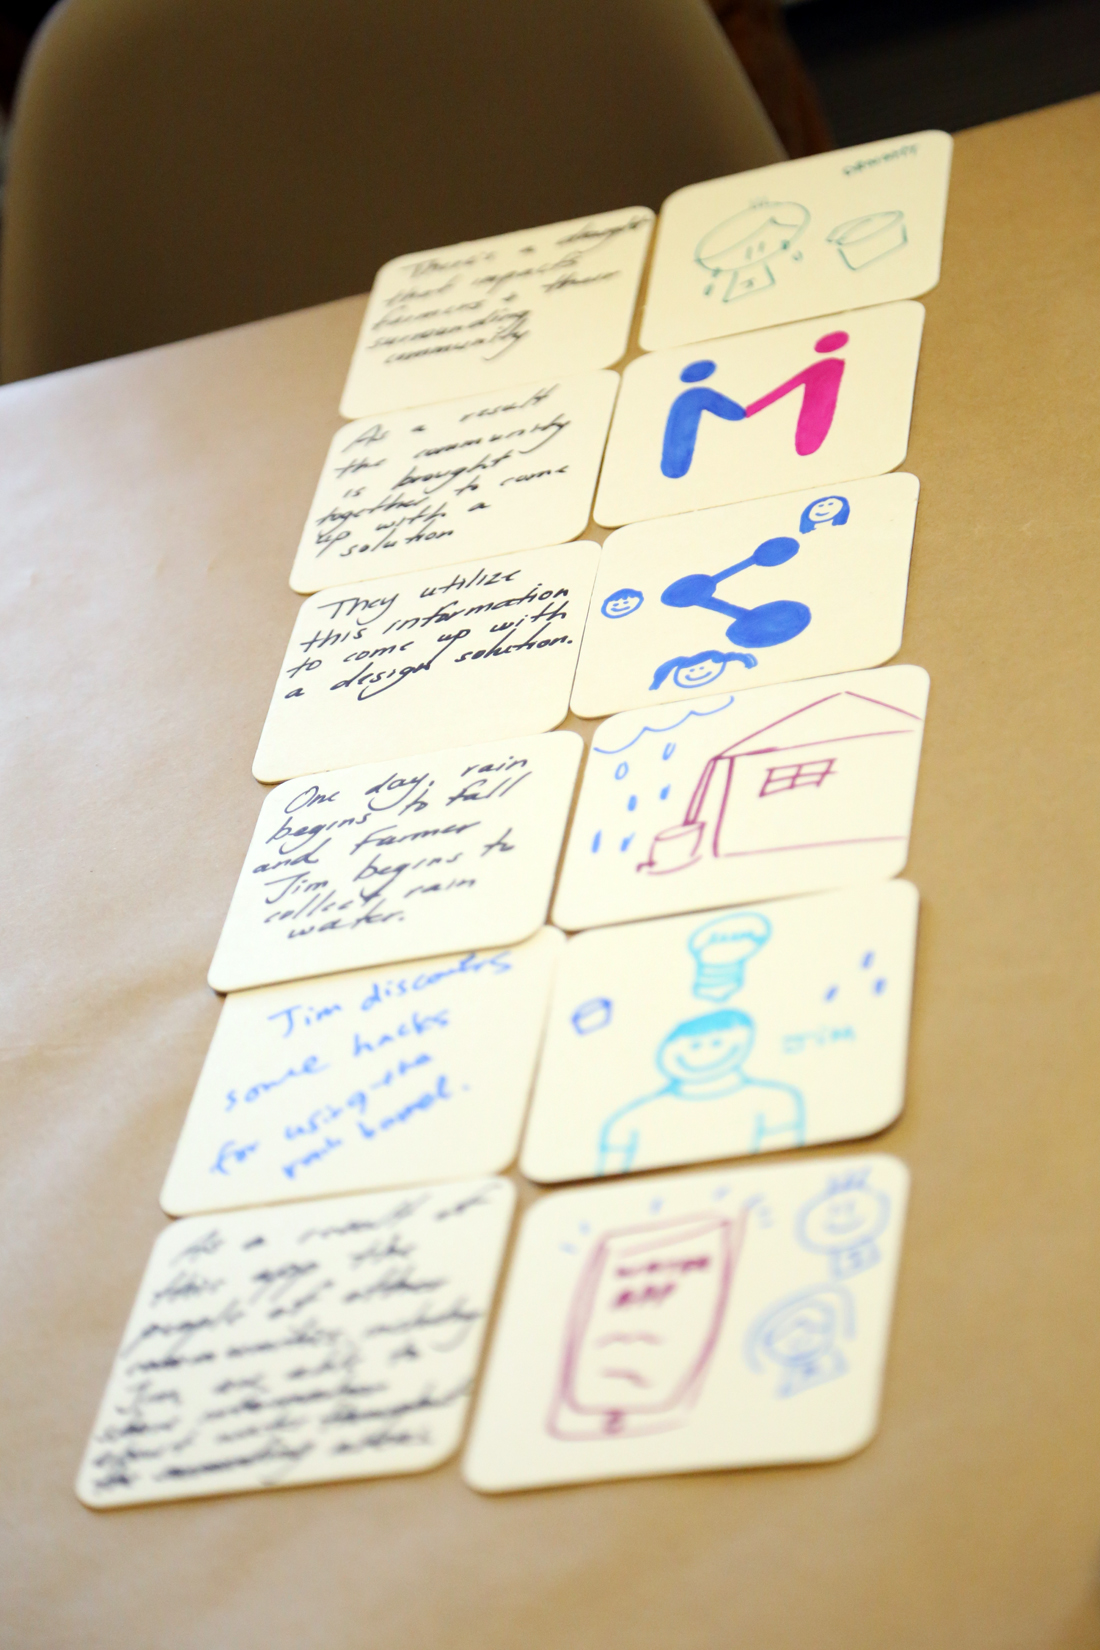 There's a drought
that impacts
farmers + their
surrounding
community
As a result
the community
is brought
together to come
up with a
solution
They utilize
this information
to come up with
a design solution.
One day, rain
begins to fall
and Farmer
Jim begins to
collect rain
water.
Jim discovers
some hacks
for using the
rain barrel.
Jim
As a result of
this app, the
people at other
communities, including
Jim, are able to
share information
about water throughout
the
WATER
APP